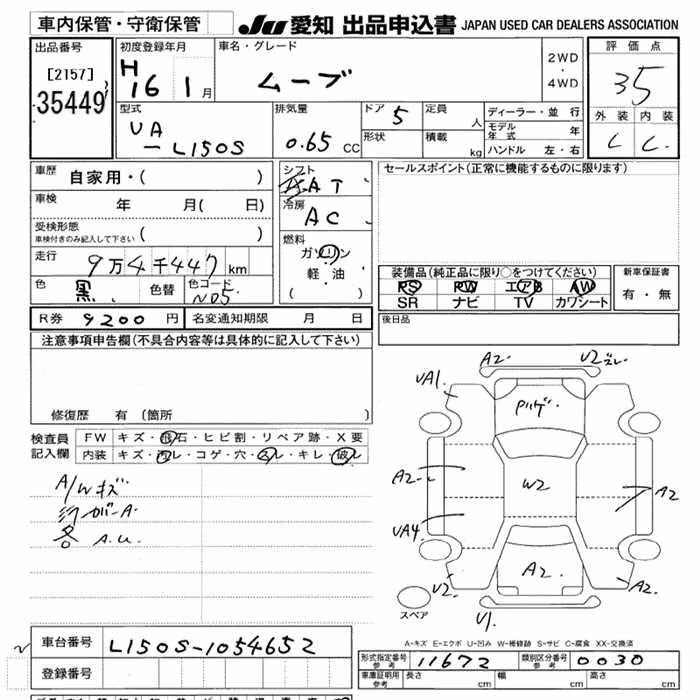 車内保管・守衛保管 JU 愛知 出品申込書 JAPAN USED CAR DEALERS ASSOCIATION
出品番号 初度登録年月 車名・グレード 2WD 評価点
[2157] H ・
35449 16 1月 ムーブ 4WD 35
型式 排気量 ドア 5 定員 人 ディーラー・並行 外装 内装
UA モデル年式 年 C C
-L150S 0.65 CC 形状 積載 kg ハンドル 左・右
車歴 自家用・( ) シフト AT セールスポイント(正常に機能するものに限ります)
車検 年 月( 日) 冷房
受検形態 ( ) AC
車検付きのみ記入して下さい 燃料
走行 9万4千447km ガソリン
色 黒 色替 色コード 軽油 装備品(純正品に限り○をつけてください) 新車保証書
N05 ( ) PS PW エアB AW 有・無
SR ナビ TV カワシート
R券 9200円 名変通知期限 月 日 後日品
注意事項申告欄(不具合内容等は具体的に記入して下さい)
修復歴 有(箇所 )
検査員 FW キズ・飛石・ヒビ割・リペア跡・X要
記入欄 内装 キズ・汚レ・コゲ・穴・スレ・キレ・破レ
A/Wキズ
カバーA
各 A.U.
A2 V2
UA1
A2 W2 A2
UA4
V2 A2 A2
スペア V1
A-キズ E-エクボ U-凹み W-補修跡 S-サビ C-腐食 XX-交換済
車台番号 L150S-1054652
形式指定番号 参考 11672 類別区分番号 参考 0030
登録番号 車庫証明用 参考 長さ 幅 高さ
cm cm cm